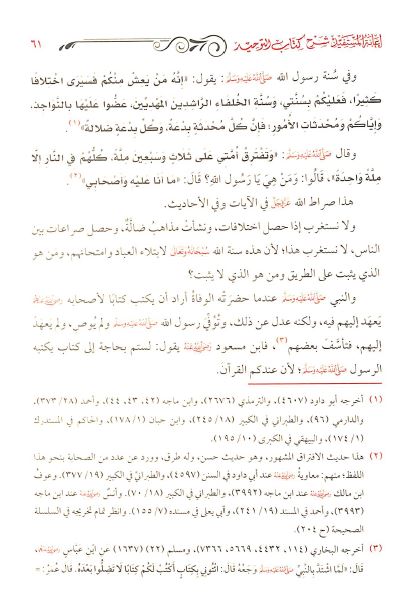 إعانة المستفيد شرح كتاب التوحيد ٦١
وفي سُنة رسول الله ﷺ: يقول: «إِنَّهُ مَنْ يَعشْ منكُمْ فَسيرى اختلافًا
كثيرًا، فَعَليْكُمْ بِسُنَّتي، وسنَّة الخُلفاءِ الرَّاشدين المَهديِّين، عضُّوا عليْها بالنَّواجذ،
وإيَّاكُمْ ومُحْدثات الأمُور؛ فإنَّ كلَّ مُحْدثةٍ بِدْعة، وكلَّ بدْعة ضلالة»(١).
وقال ﷺ: «وتَفْترقُ أُمَّتي على ثلاثٍ وسبْعين ملَّة، كلُّهُمْ في النَّار إلا
ملَّةً واحدَةً»، قَالُوا: وَمَنْ هِيَ يَا رَسُولَ اللهِ؟ قَالَ: «ما أنا عَليْه وأصْحابي»(٢).
هذا صراط الله ﷻ في الآيات وفي الأحاديث.
ولا نستغرب إذا حصل اختلافات، ونشأتْ مذاهبُ ضالَّةٌ، وحصل صراعات بين
الناس، لا نستغرب هذا؛ لأن هذه سنة الله سبحانه وتعالى لابتلاء العباد وامتحانهم، ومن هو
الذي يثبت على الطريق ومن هو الذي لا يثبت؟
والنبي ﷺ عندما حضرتْه الوفاةُ أراد أن يكتب كتابًا لأصحابه
يَعهَد إليهم فيه، ولكنه عدل عن ذلك، وتُوُفِّي رسول الله ﷺ ولم يُوص، ولم يعهد
إليهم، فتأسَّفَ بعضهم(٣)، فابن مسعود رضي الله عنه يقول: لستم بحاجة إلى كتاب يكتبه
الرسول ﷺ؛ لأن عندكم القرآن.
(١) أخرجه أبو داود (٤٦٠٧)، والترمذي (٢٦٧٦)، وابن ماجه (٤٢، ٤٣، ٤٤)، وأحمد (٢٨/ ٣٧٣)،
والدارمي (٩٦)، والطبراني في الكبير (١٨/ ٢٤٥)، وابن حبان (١/ ١٧٨)، والحاكم في المستدرك
(١/ ١٧٤)، والبيهقي في الكبرى (١٠/ ١٩٥).
(٢) هذا حديث الافتراق المشهور، وهو حديث حسن، وله طرق، وورد عن عدد من الصحابة بنحو هذا
اللفظ؛ منهم: معاوية رضي الله عنه عند أبي داود في السنن (٤٥٩٧)، والطبراني في الكبير (١٩/ ٣٧٧). وعوف
ابن مالك رضي الله عنه عند ابن ماجه (٣٩٩٢)، والطبراني في الكبير (١٨/ ٧٠). وأنس رضي الله عنه عند ابن ماجه
(٣٩٩٣)، وأحمد في المسند (١٩/ ٢٤١)، وأبي يعلى في مسنده (٧/ ١٥٥). وانظر تمام تخريجه في السلسلة
الصحيحة (ح ٢٠٤).
(٣) أخرجه البخاري (١١٤، ٤٤٣٢، ٥٦٦٩، ٧٣٦٦)، ومسلم (٢٢) (١٦٣٧) عن ابْن عبَّاس رضي الله عنهما،
قال: «لَمَّا اشْتَدَّ بالنَّبيِّ ﷺ وَجَعُهُ قَالَ: ائْتُوني بكتَابٍ أَكْتُبْ لَكُمْ كِتَابًا لَا تَضلُّوا بَعْدَهُ. قَالَ عُمَرُ: =